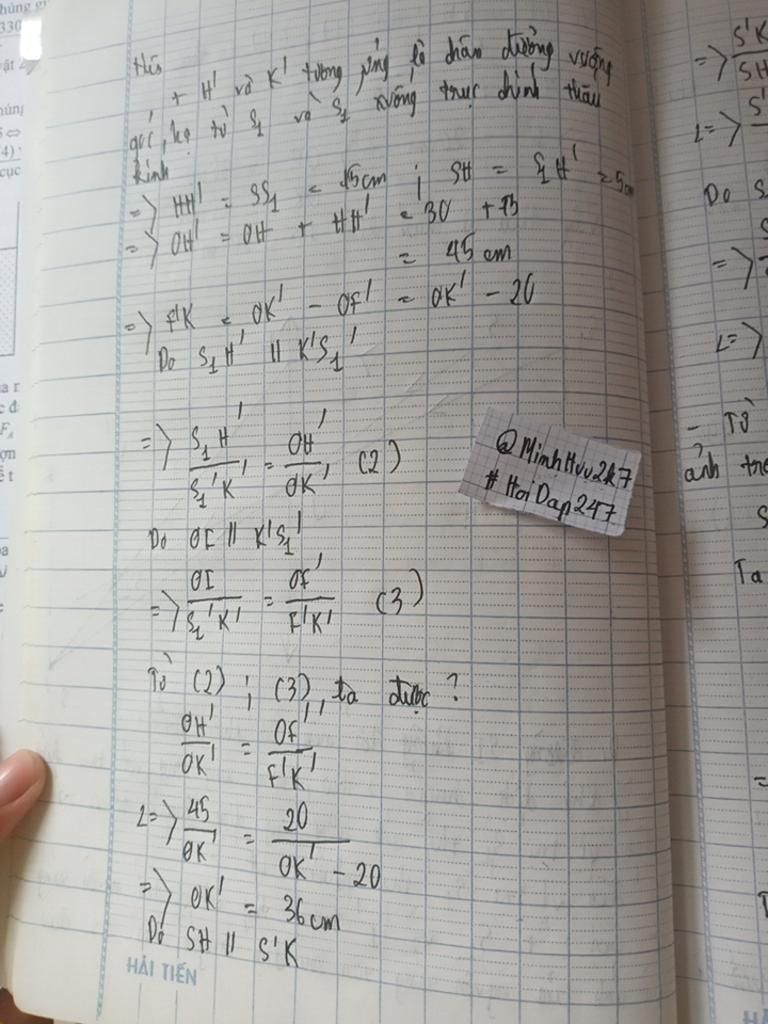 + H' và K' tương ứng là chân đường vuông
góc, hạ từ S1 và S1' xuống trục chính thấu
kính
=> HH' = SS1 = 15cm ; SH = S1H' = 5cm
=> OH' = OH + HH' = 30 + 15
= 45 cm
=> F'K' = OK' - OF' = OK' - 20
Do S1H' // K'S1'
=> S1H'/S1'K' = OH'/OK' (2)
Do OI // K'S1'
=> OI/S1'K' = OF'/F'K' (3)
Từ (2) ; (3), ta được :
OH'/OK' = OF'/F'K'
<=> 45/OK' = 20/OK' - 20
=> OK' = 36cm
Do SH // S'K
HẢI TIẾN
@MinhHuu2k7
#HoiDap247
=> S'K
SH
<=> S'
Do S
=>
<=>
- Từ
ảnh
Ta
330